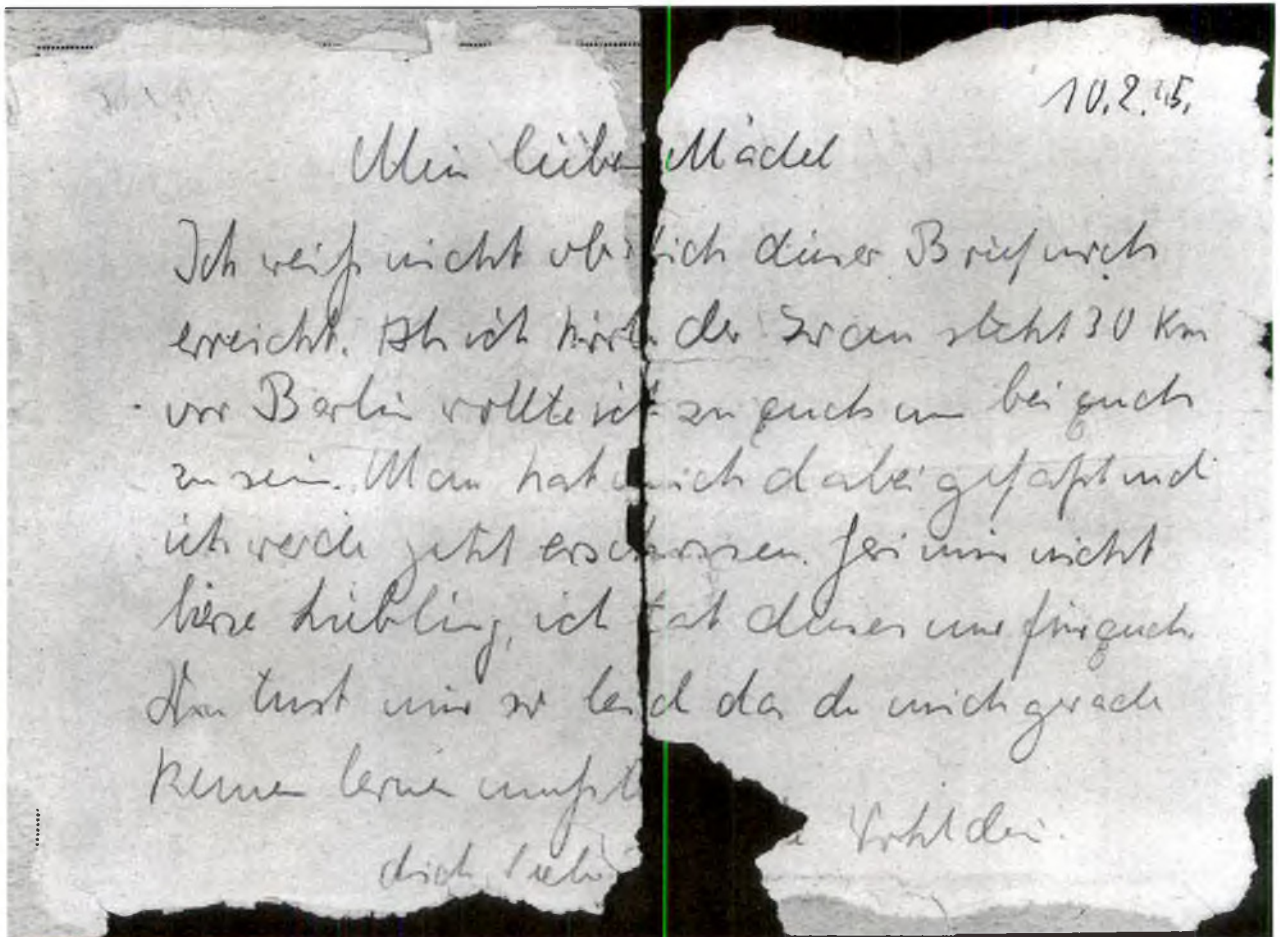 10.2.45.
Mein liebes Mädel
Ich weiß nicht ob dich dieser Brief noch
erreicht. Als ich hörte der Iwan steht 30 Km
vor Berlin wollte ich zu euch um bei euch
zu sein. Man hat mich dabei gefaßt und
ich werde jetzt erschossen. Sei mir nicht
böse Liebling, ich tat dieses nur für euch.
Du tust mir so leid da du mich gerade
kennen lernen mußt
Lebt
dich